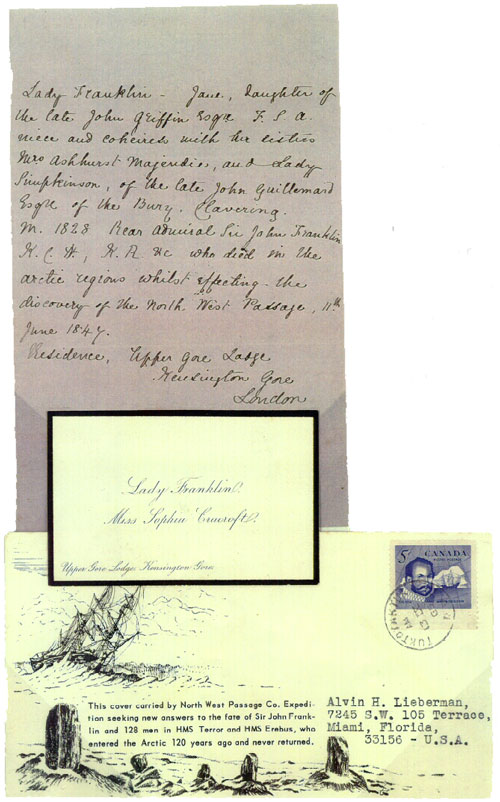 Lady Franklin - Jane, Daughter of
the late John Griffin Esqre F. S. A.
niece and coheiress with her sisters
Mrs Ashhurst Majendie, and Lady
Simpkinson, of the late John Guillemard
Esqre of the Bury. Clavering.
M. 1828 Rear Admiral Sir John Franklin
K. C. H, K. R &c who died in the
arctic regions whilst effecting the
discovery of the North West Passage, 11th
June 1847.
Residence, Upper Gore Lodge
Kensington Gore
London
Lady Franklin.
Miss Sophia Cracroft.
Upper Gore Lodge, Kensington Gore.
5¢ CANADA
TUKTOYAK
This cover carried by North West Passage Co. Expedi-
tion seeking new answers to the fate of Sir John Frank-
lin and 128 men in HMS Terror and HMS Erebus, who
entered the Arctic 120 years ago and never returned.
Alvin H. Lieberman,
7245 S.W. 105 Terrace,
Miami, Florida,
33156 - U.S.A.